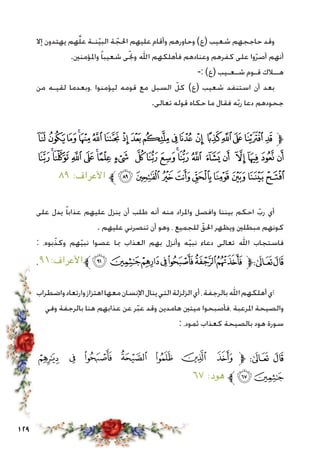 وقد حاججهم شعيب (ع) وحاورهم وأقام عليهم الحجّة البيّنـة علّهم يهتدون إلا
أنهم أصرّوا على كفرهم وعنادهم فأهلكهم الله ونجّى شعيباً والمؤمنين.
هــلاك قــوم شــعـيب (ع) :-
بعد أن استنفد شعيب (ع) كلّ السبل مع قومه ليؤمنوا .وبعدما لقيـه من
جحودهم دعا ربّه فقال ما حكاه قوله تعالى.
﴿ قَدِ ٱفْتَرَيْنَا عَلَى ٱللَّهِ كَذِبًا إِنْ عُدْنَا فِى مِلَّتِكُم بَعْدَ إِذْ نَجَّىٰنَا ٱللَّهُ مِنْهَا وَمَا يَكُونُ لَنَآ
أَن نَّعُودَ فِيهَآ إِلَّآ أَن يَشَآءَ ٱللَّهُ رَبُّنَا وَسِعَ رَبُّنَا كُلَّ شَىْءٍ عِلْمًا عَلَى ٱللَّهِ تَوَكَّلْنَا رَبَّنَا
ٱفْتَحْ بَيْنَنَا وَبَيْنَ قَوْمِنَا بِٱلْحَقِّ وَأَنتَ خَيْرُ ٱلْفَٰتِحِينَ ﴿٨٩﴾ ﴾ الأعراف: ٨٩
أي ربّ احكم بيننا وافصل والمراد منه أنه طلب أن ينزل عليهم عذاباً يدل على
كونهم مبطلين ويظهر الحقّ للجميع . وهو أن تنصرني عليهم .
فاستجاب الله تعالى دعاء نبيّه وأنزل بهم العذاب بما عصوا نبيّهم وكذّبوه. :
قَالَ تَعَالَىٰ: ﴿ فَأَخَذَتْهُمُ ٱلرَّجْفَةُ فَأَصْبَحُوا۟ فِى دَارِهِمْ جَٰثِمِينَ ﴿٩١﴾ ﴾ الأعراف: ٩١.
اي أهلكهم الله بالرجفة. أي الزلزلة التي ينال الإنسان معها اهتزاز وارتعاد واضطراب
والصيحة المرعبة .فأصبحوا ميتين هامدين وقد عبّر عن عذابهم هنا بالرجفة وفي
سورة هود بالصيحة كعذاب ثمود. :
قَالَ تَعَالَىٰ: ﴿ وَأَخَذَ ٱلَّذِينَ ظَلَمُوا۟ ٱلصَّيْحَةُ فَأَصْبَحُوا۟ فِى دِيَٰرِهِمْ
جَٰثِمِينَ ﴿٦٧﴾ ﴾ هود: ٦٧
١٢٩